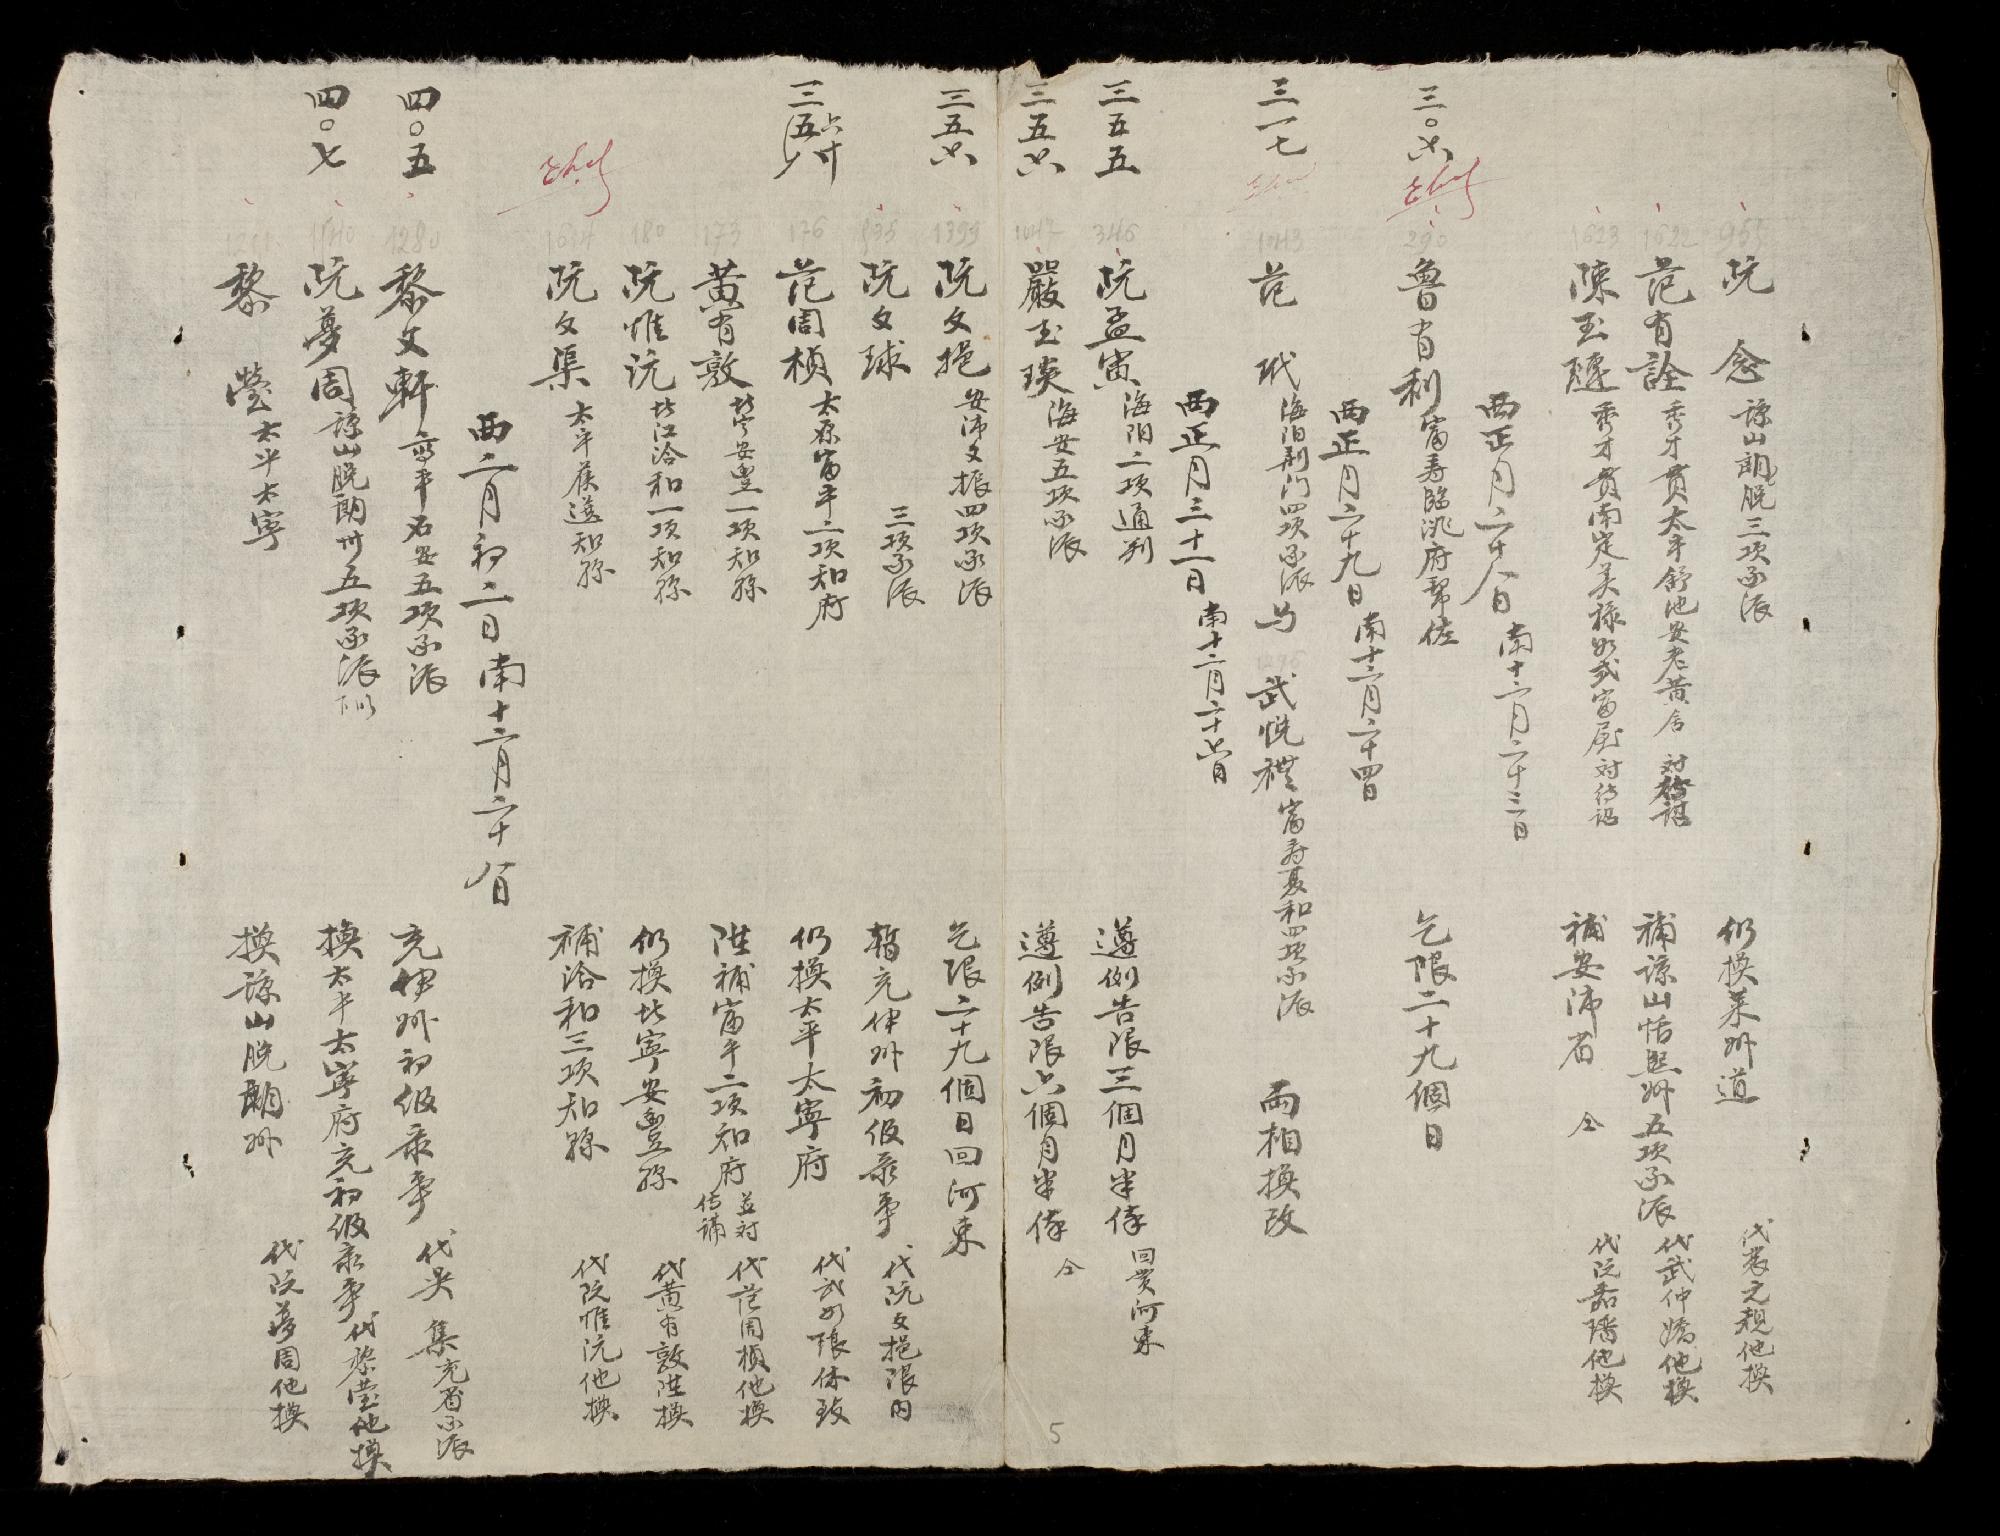 965 阮 念 諒山朗脱三項承派 仍換萊州道 代裴元親他換
1622 范有詮 秀才貫太平舒池安老黄舍 対待詔 補諒山恬熙州五項承派 代武仲嬌他換
1623 陳玉璉 秀才貫南定美祿 対待詔 補安沛省 仝 代阮嘉璠他換
西正月二十八日 南十二月二十三日
三〇六 290 魯肖利 富寿臨洮府幇佐 乞限二十九個日
西正月二十九日 南十二月二十四日
三一七 1043 范 玳 海陽荆门四項承派 与 1296 武悦禮 富寿夏和四項承派 両相換改
西正月三十一日 南十二月二十六日
三五五 346 阮孟寅 海陽二項通判 遵例告限三個月半俸 回貫河東
三五六 1047 嚴玉琰 海安五項承派 遵例告限六個月半俸 仝
三五六 1399 阮文挹 安沛文振四項承派 乞限二十九個日回河東
835 阮文球 三項承派 暫充伊州初級录事 代阮文挹限内
三五 176 范周楨 太原富平二項知府 仍換太平太寧府 代武 限休致
173 黄有敦 北宁安豊一項知縣 陞補富平二項知府 並対 代范周楨他換
180 阮惟沆 北江洽和一項知縣 仍換北寧安豊縣 代黄有敦陞換
1624 阮文集 太平候選知縣 補洽和三項知縣 代阮惟沆他換
西二月初二日 南十二月二十八日
四〇五 1280 黎文軒 高平石安五項承派 充伊州初級录事 代吳 集充省承派
四〇七 1140 阮夢周 諒山脱朗州五項承派 換太平太寧府充初級录事 代黎瑩他換
黎 瑩 太平太寧 換諒山脱朗州 代阮夢周他換
5